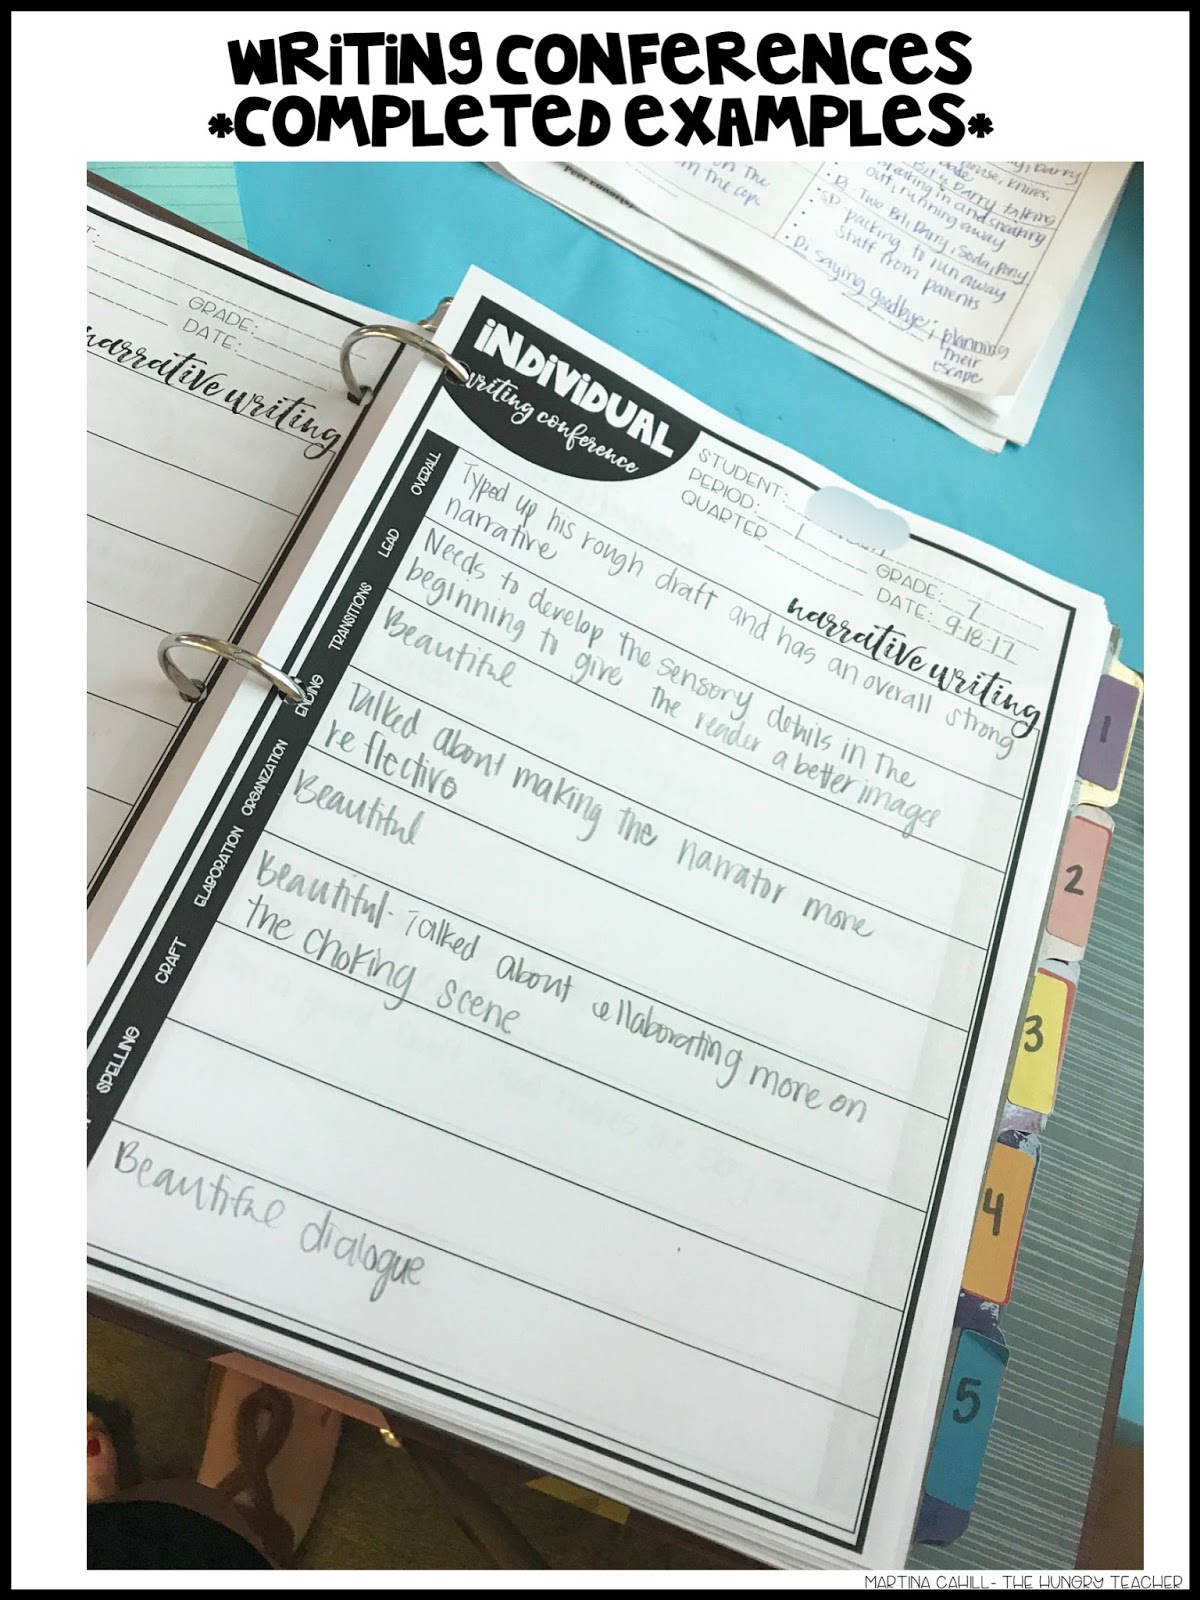 WRITING CONFERENCES
*COMPLETED EXAMPLES*
on the
in the cops
Peer
house, knives,
Bri & Darry talking
eating in and sneaking
out, running away
Di: Two Bit, Darry, Soda, Pony
packing to run away
stuff from parents
Di saying goodbye; planning
their
escape
GRADE:
DATE:
narrative writing
INDIVIDUAL
writing conference
STUDENT:
PERIOD: 1
QUARTER
GRADE: 7
DATE: 9-18-17
narrative writing
OVERALL
Typed up his rough draft and has an overall strong
narrative
LEAD
Needs to develop the sensory details in the
beginning to give the reader a better images
TRANSITIONS
Beautiful
ENDING
Talked about making the narrator more
reflective
ORGANIZATION
Beautiful
ELABORATION
Beautiful- Talked about ellaborating more on
the choking scene
CRAFT
SPELLING
Beautiful dialogue
1
2
3
4
5
MARTINA CAHILL- THE HUNGRY TEACHER